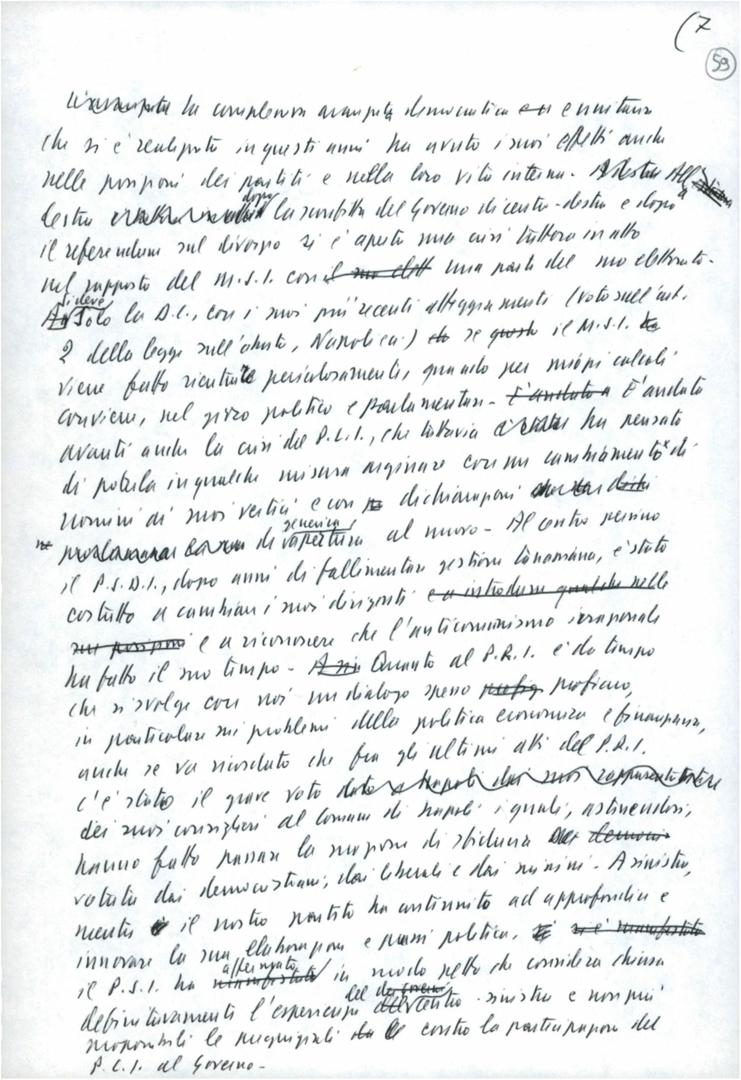 (7
59
la complessiva avanzata democratica e unitaria
che si è realizzata in questi anni ha avuto i suoi effetti anche
nelle posizioni dei partiti e nella loro vita interna. A
destra dopo la sconfitta del Governo di centro-destra e dopo
il referendum sul divorzio si è aperta una crisi tuttora in atto
nel rapporto del M.S.I. con una parte del suo elettorato.
si deve
Solo la D.C., con i suoi più recenti atteggiamenti (voto sull'art.
2 della legge sull'aborto, Napoli ) se il M.S.I.
viene fatto rientrare pericolosamente, quando per miopi calcoli
conviene, nel gioco politico e parlamentare. È andata
avanti anche la crisi del P.L.I., che tuttavia ha pensato
di poterla in qualche misura arginare con un cambiamento di
uomini ai suoi vertici e con dichiarazioni
generica
di apertura al nuovo. Al centro persino
il P.S.D.I., dopo anni di fallimentare gestione tanassiana, è stato
costretto a cambiare i suoi dirigenti e a introdurre qualche nelle
sue posizioni e a riconoscere che l'anticomunismo irrazionale
ha fatto il suo tempo. Quanto al P.R.I. è da tempo
che si svolge con noi un dialogo spesso proficuo,
in particolare sui problemi della politica economica e finanziaria,
anche se va ricordato che fra gli ultimi atti del P.R.I.
c'è stato il grave voto dato a Napoli dai suoi rappresentanti
dei suoi consiglieri al Comune di Napoli i quali, astenendosi,
hanno fatto passare la mozione di sfiducia
votata dai democristiani, dai liberali e dai missini. A sinistra,
mentre il nostro partito ha continuato ad approfondire e
innovare la sua elaborazione e prassi politica, si è manifestato
affermato
il P.S.I. ha in modo netto che considera chiusa
dei governi
definitivamente l'esperienza del centro-sinistra e non più
proponibili le pregiudiziali contro la partecipazione del
P.C.I. al Governo.